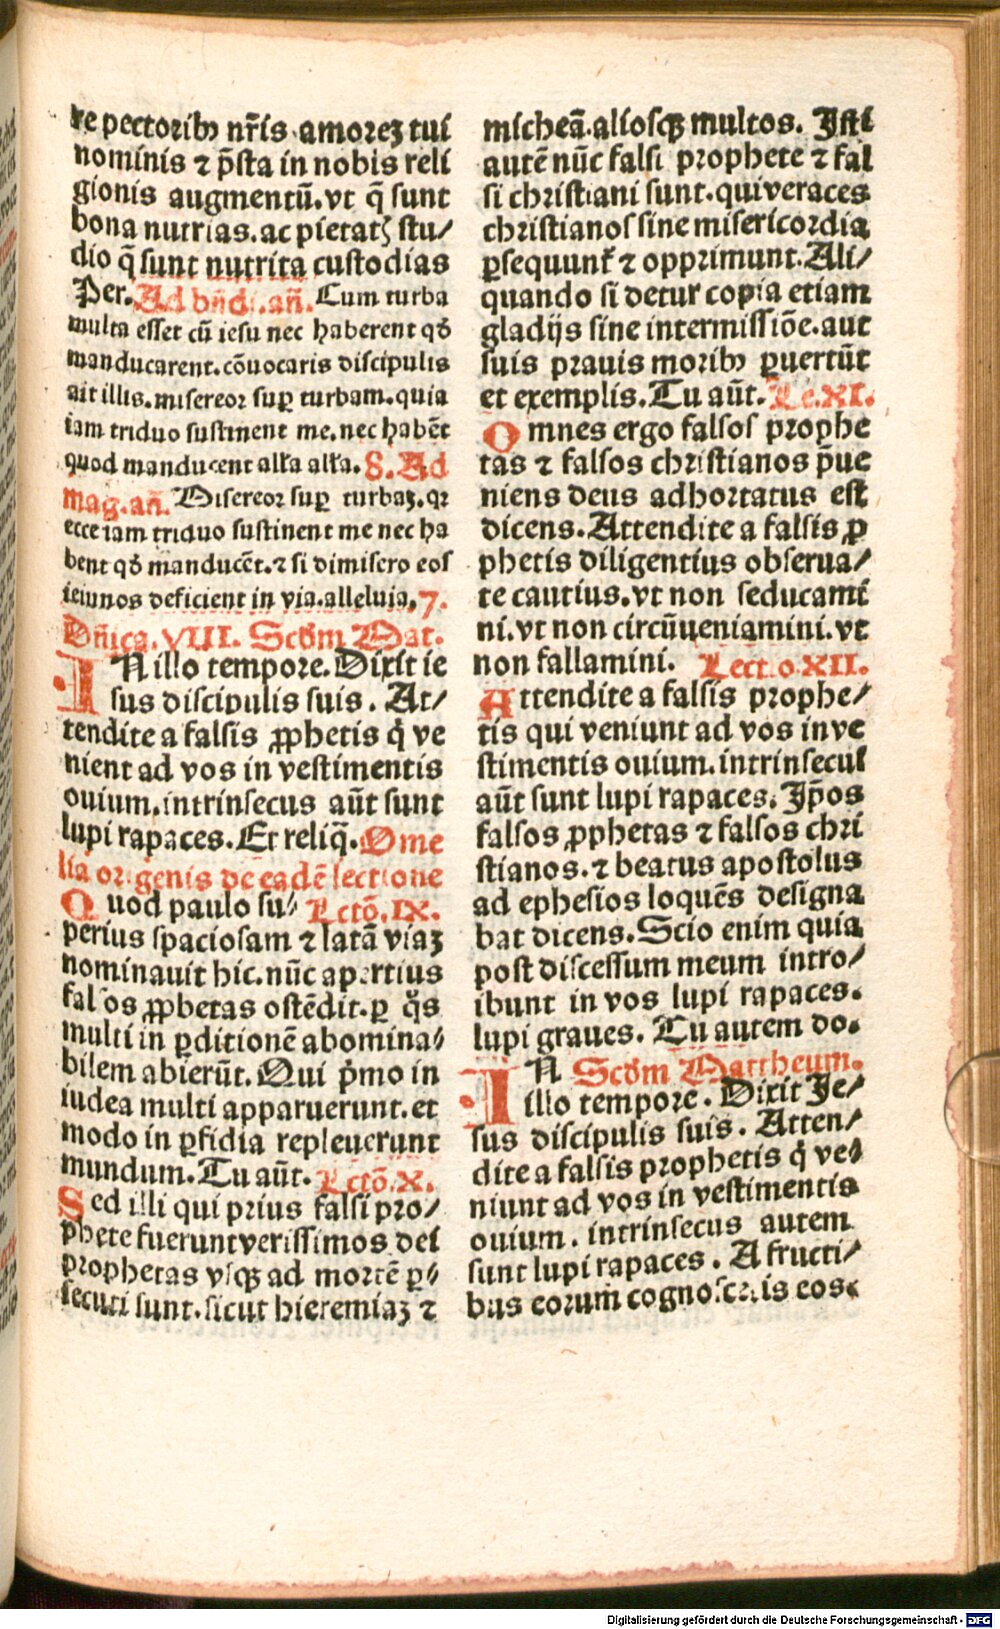 re pectoribꝫ nr̃is amoreꝫ tui
nominis ⁊ p̃sta in nobis reli
gionis augmentū.vt q̃ sunt
bona nutrias.ac pietatꝭ stu/
dio q̃ sunt nutrita custodias
Per. Ad bñdi.añ. Cum turba
multa esset cū iesu nec haberent qđ
manducarent.cōuocatis discipulis
ait illis.misereor suꝑ turbam.quia
iam triduo sustinent me.nec habēt
quod manducent alła alła. S. Ad
mag.añ. Misereor suꝑ turbaꝫ.qꝛ
ecce iam triduo sustinent me nec ha
bent qđ manducēt.⁊ si dimisero eos
ieiunos deficient in via.alleluja. 7.
Dñica.VIII. Scđm Mat.
IN illo tempore. Dixit ie
sus discipulis suis. At/
tendite a falsis ꝓphetis q̇ ve
nient ad vos in vestimentis
ouium.intrinsecus aūt sunt
lupi rapaces. Et reliq̄. Ome
lia origenis de eadē lectione
Quod paulo su/ Lctō.IX.
perius spaciosam ⁊ latā viaꝫ
nominauit hic.nūc apertius
falsos ꝓphetas ostēdit.ꝑ q̊s
multi in ꝑditionē abomina/
bilem abierūt. Qui pͥmo in
iudea multi apparuerunt.et
modo in ꝑfidia repleuerunt
mundum. Tu aūt. Lctō.X.
Sed illi qui prius falsi pro/
phete fuerunt verissimos dei
prophetas vsqꝫ ad mortē ꝑ/
secuti sunt.sicut hieremiaꝫ ⁊
micheā.aliosqꝫ multos. Isti
autē nūc falsi prophete ⁊ fal
si christiani sunt.qui veraces
christianos sine misericordia
ꝑsequunt᷑ ⁊ opprimunt. Ali/
quando si detur copia etiam
gladijs sine intermissiōe.aut
suis prauis moribꝫ ꝑuertūt
et exemplis. Tu aūt. Le.XI.
Omnes ergo falsos prophe
tas ⁊ falsos christianos p̃ue
niens deus adhortatus est
dicens. Attendite a falsis ꝓ
phetis diligentius obserua/
te cautius.vt non seducami
ni.vt non circūueniamini.vt
non fallamini. Lectio.XII.
Attendite a falsis prophe/
tis qui veniunt ad vos in ve
stimentis ouium.intrinsecus
aūt sunt lupi rapaces. Ip̃os
falsos ꝓphetas ⁊ falsos chri
stianos.⁊ beatus apostolus
ad ephesios loquēs designa
bat dicens. Scio enim quia
post discessum meum intro/
ibunt in vos lupi rapaces.
lupi graues. Tu autem do.
IN Scđm Mattheum.
illo tempore. Dixit Je/
sus discipulis suis. Atten/
dite a falsis prophetis q̇ ve/
niunt ad vos in vestimentis
ouium. intrinsecus autem
sunt lupi rapaces. A fructi/
bus eorum cognoscetis eos.
Digitalisierung gefördert durch die Deutsche Forschungsgemeinschaft - DFG